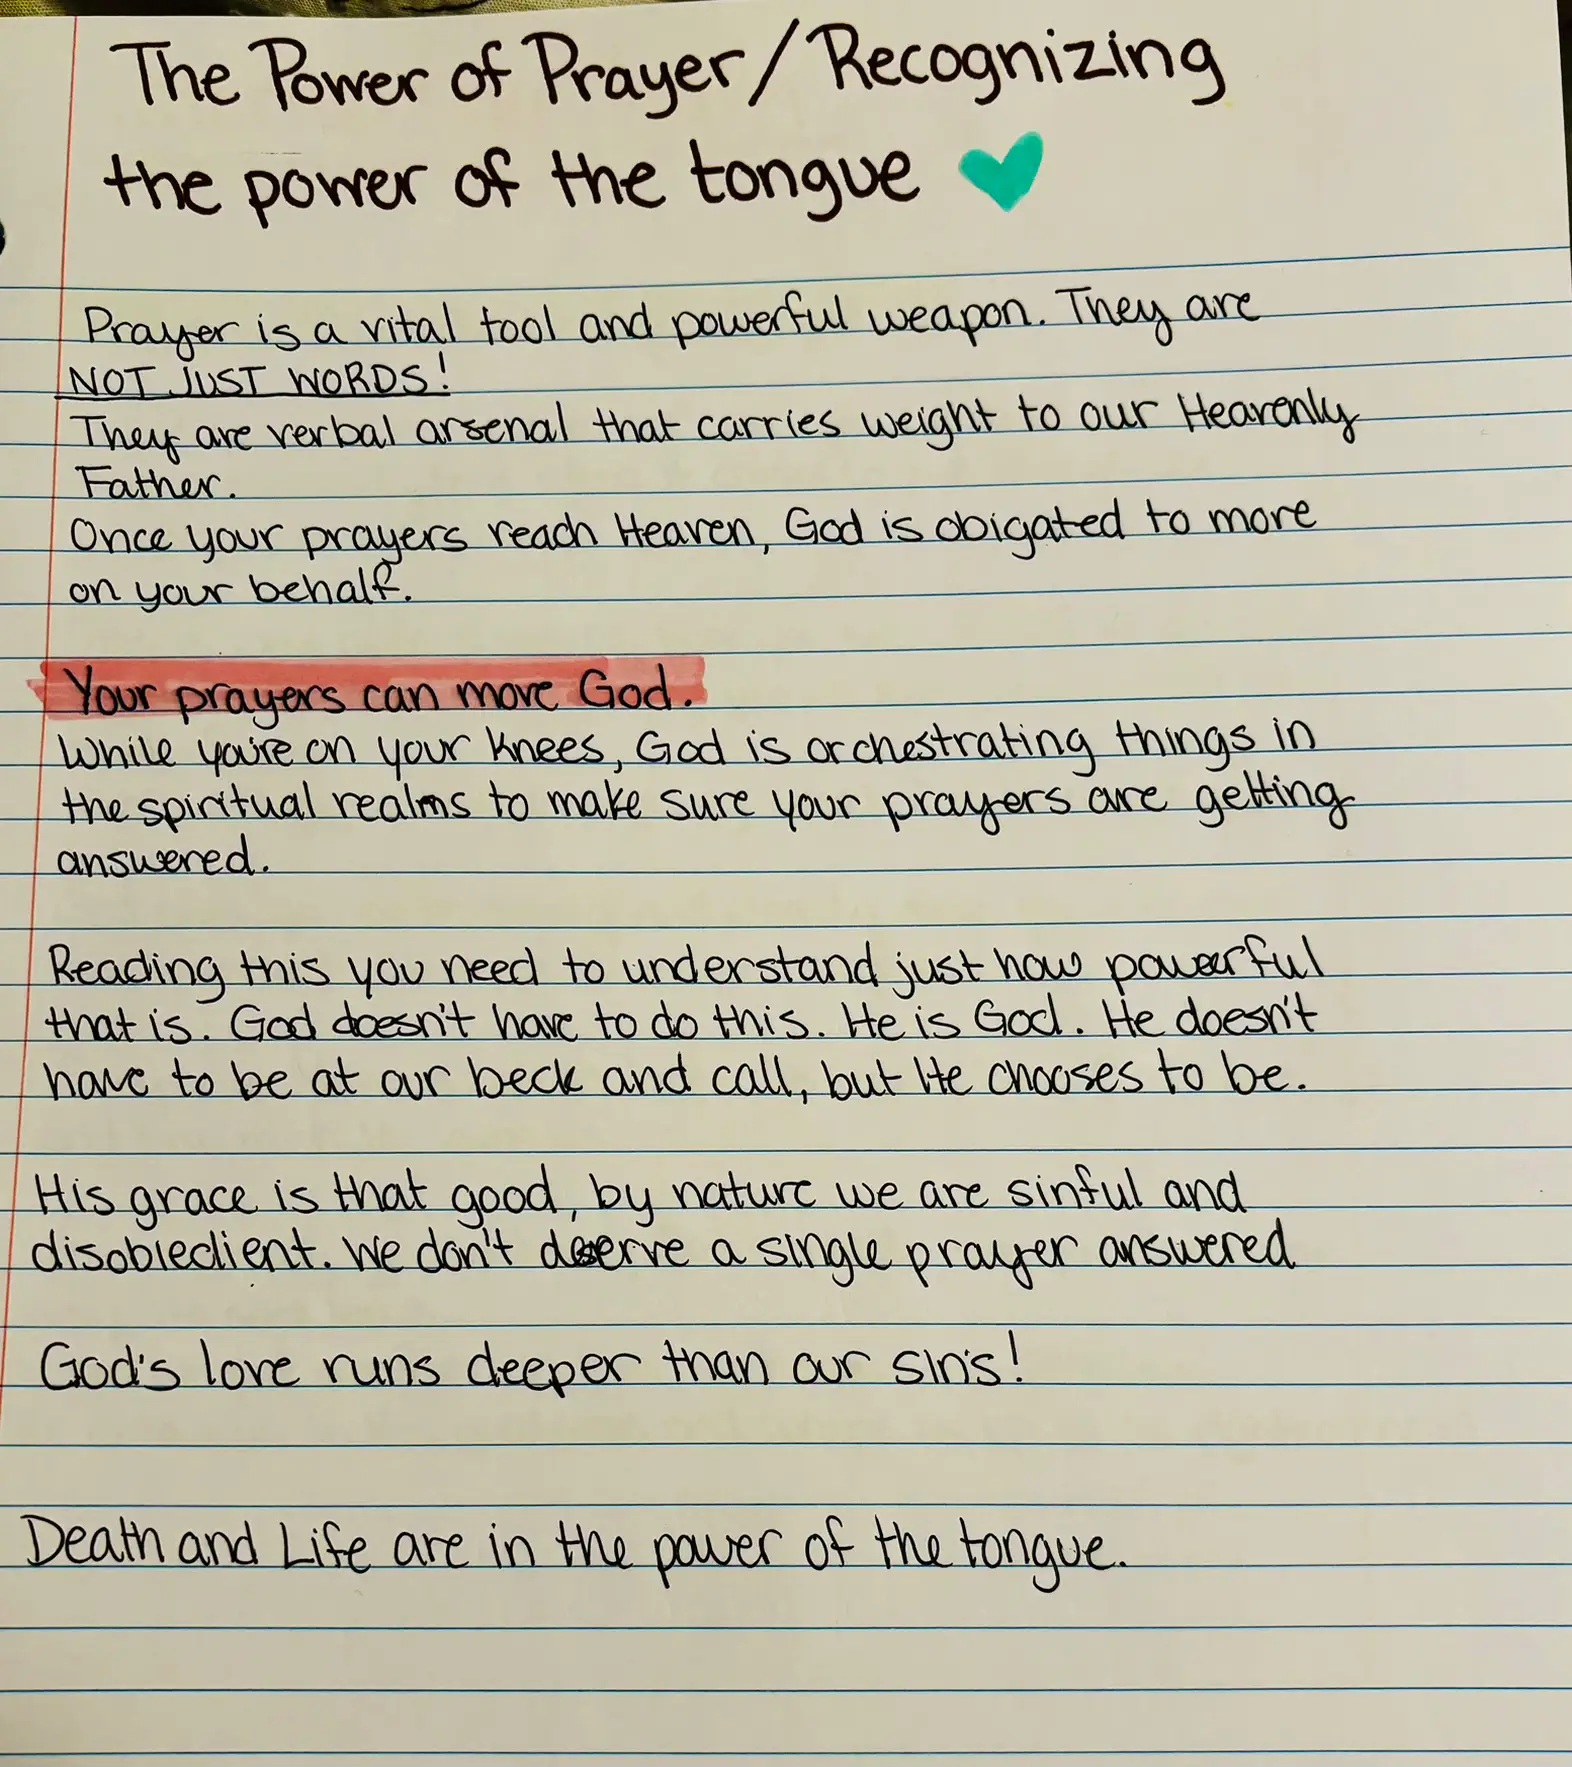 The Power of Prayer/Recognizing
the power of the tongue
Prayer is a vital tool and powerful weapon. They are
NOT JUST WORDS!
They are verbal arsenal that carries weight to our Heavenly
Father.
Once your prayers reach Heaven, God is obigated to move
on your behalf.
Your prayers can move God.
While you're on your knees, God is orchestrating things in
the spiritual realms to make sure your prayers are getting
answered.
Reading this you need to understand just how powerful
that is. God doesn't have to do this. He is God. He doesn't
have to be at our beck and call, but He chooses to be.
His grace is that good, by nature we are sinful and
disobiedient. We don't deserve a single prayer answered
God's love runs deeper than our sin's!
Death and Life are in the power of the tongue.